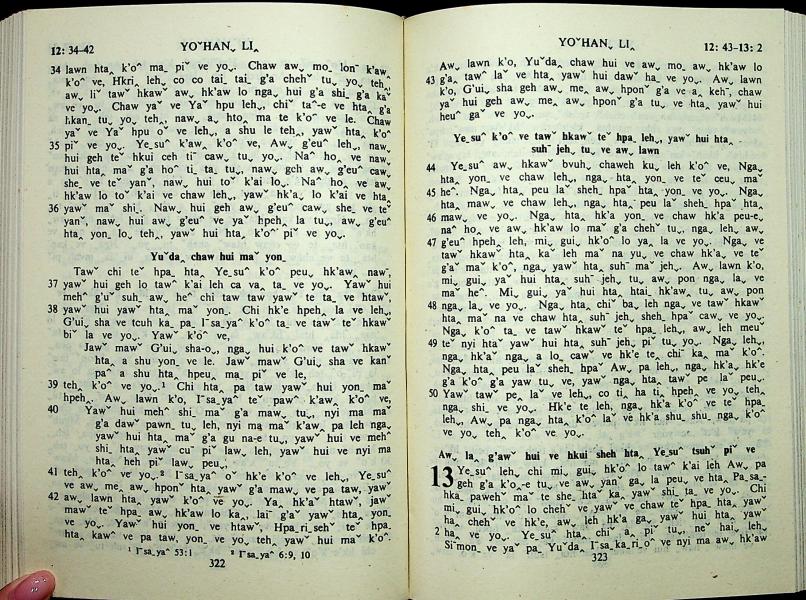 12: 34-42
YOˇHANˬ LIˬ
34 lawn htaˬ k'oˆ maˍ piˇ ve yoˬ. Chaw awˬ moˍ lonˉ k'awˬ
k'oˆ ve, Hkriˍ lehˬ, co co taiˍ taiˍ g'a chehˇ tuˬ yoˬ tehˬ
awˬ liˇ tawˇ hkawˇ awˬ hk'aw lo ngaˬ hui g'a shiˍ g'a kaˇ
ve yoˬ. Chaw yaˇ ve Yaˇ hpu lehˬ, chiˇ taˆ-e ve htaˬ g'a
hkanˍ tuˬ yoˬ tehˬ, nawˬ aˬ htoˬ ma te k'oˆ ve le. Chaw
yaˇ ve Yaˇ hpu oˇ ve lehˬ, a shu le tehˬ, yawˇ htaˬ k'oˆ
35 piˇ ve yoˬ. Yeˍsuˆ k'awˬ k'oˆ ve, Awˬ g'euˆ lehˬ, naw
hui geh teˇ hkui ceh tiˇ cawˇ tuˬ yoˬ. Naˆ hoˬ ve naw
hui htaˬ maˇ g'a hoˆ tiˍ taˍ tuˬ, naw geh awˬ g'euˆ caw
sheˍ ve teˇ yanˇ, naw hui toˇ k'ai loˬ. Naˆ hoˬ ve aw
hk'aw lo toˇ k'ai ve chaw lehˬ, yawˇ hk'aˬ lo k'ai ve htaˬ
36 yawˇ maˇ shiˍ. Nawˬ hui geh awˬ g'euˆ caw sheˍ ve teˇ
yanˇ, naw hui awˬ g'euˆ ve yaˇ hpehˬ la tuˬ, awˬ g'euˆ
htaˬ yonˍ loˬ tehˬ, yawˇ hui htaˬ k'oˆ piˇ ve yoˬ.
Yuˇda chaw hui maˇ yonˍ
Tawˇ chi teˇ hpaˍ htaˬ Yeˍsuˆ k'oˆ peuˬ hk'awˬ nawˉ,
37 yawˇ hui geh lo tawˇ k'ai leh ca vaˬ taˍ ve yoˬ. Yawˇ hui
mehˆ g'uˇ suhˉ awˬ heˆ chi taw taw yawˇ te taˍ ve htawˇ,
38 yawˇ hui yawˇ htaˬ maˇ yonˍ. Chi hk'e hpehˬ la ve lehˬ,
G'uiˬ sha ve tcuh kaˍ paˍ Iˉsaˍyaˆ k'oˆ taˍ ve tawˇ teˇ hkawˇ
biˇ la ve yoˬ. Yawˇ k'oˆ ve,
Jaw mawˇ G'uiˬ sha-oˬ, ngaˬ hui k'oˆ ve tawˇ hkawˇ
htaˬ a shu yonˍ ve le. Jaw mawˇ G'uiˬ sha ve kanˇ
paˆ a shu htaˬ hpeuˍ maˍ piˇ ve le,
39 tehˬ k'oˆ ve yoˬ.¹ Chi htaˬ pa taw yawˇ hui yonˍ maˇ
hpehˬ. Awˬ lawn k'oˬ, Iˉsaˍyaˆ teˇ pawˆ k'awˬ k'oˆ ve,
40 Yawˇ hui mehˆ shiˍ maˇ g'a mawˬ tuˬ, nyi ma maˇ
g'a dawˇ pawnˬ tuˬ leh, nyi ma maˇ k'awˬ pa leh nga
yawˇ hui htaˬ maˇ g'a gu na-e tuˬ, yawˇ hui ve mehˆ
shiˍ htaˬ yawˇ cuˇ piˇ lawˬ leh, yawˇ hui ve nyi ma
htaˬ heh piˇ lawˬ peuˬ,
41 tehˬ k'oˆ ve yoˬ.² Iˉsaˍyaˆ oˇ hk'e k'oˆ ve lehˬ, Yeˍsuˆ
ve awˬ me awˬ hponˇ htaˬ yawˇ g'a mawˬ ve pa taw, yawˇ
42 awˬ lawn htaˬ yawˇ k'oˆ ve yoˬ. Yaˬ hk'aˇ htawˇ, jawˇ
mawˇ teˇ hpaˍ awˬ hk'aw lo kaˬ, laiˬ g'aˇ yawˇ htaˬ yonˍ
ve yoˬ. Yawˇ hui yonˍ ve htawˇ, Hpaˍriˍsehˇ teˇ hpaˍ
htaˬ kawˆ ve pa taw, yonˍ ve yoˬ tehˬ yawˇ hui maˇ k'oˆ.
¹ Iˉsaˍyaˆ 53:1
² Iˉsaˍyaˆ 6:9, 10
322
YOˇHANˬ LIˬ
12: 43-13: 2
Awˬ lawn k'o, Yuˇda chaw hui ve awˬ mo awˬ hk'aw lo
43 g'aˬ tawˆ laˇ ve htaˬ yawˇ hui dawˇ haˍ ve yoˬ. Awˬ lawn
k'o, G'uiˬ sha geh awˬ meˬ awˬ hponˇ g'a ve aˬ kehˉ, chaw
yaˇ hui geh awˬ meˬ awˬ hponˇ g'a tuˬ ve htaˬ yawˇ hui
heuˆ gaˇ ve yoˬ.
Yeˍsuˆ k'oˆ ve tawˇ hkawˇ teˇ hpaˍ lehˬ, yawˇ hui htaˬ
suhˉ jehˬ tuˬ ve awˬ lawn
44 Yeˍsuˆ awˬ hkawˇ bvuhˬ chaweh kuˬ leh k'oˆ ve, Ngaˬ
htaˬ yonˍ ve chaw lehˬ, ngaˬ htaˬ yonˍ ve teˇ ceuˬ maˇ
45 heˆ. Ngaˬ htaˬ peu laˇ shehˍ hpaˇ htaˬ yonˍ ve yoˬ. Ngaˬ
htaˬ mawˬ ve chaw lehˬ, ngaˬ htaˬ peu laˇ shehˍ hpaˇ htaˬ
46 mawˬ ve yoˬ. Ngaˬ htaˬ hk'a yonˍ ve chaw hk'a peu-e,
naˆ hoˬ ve awˬ hk'aw lo maˇ g'a chehˇ tuˬ, ngaˬ leh awˬ
47 g'euˆ hpehˬ leh, miˬ guiˬ hk'oˆ lo yaˬ la ve yoˬ. Ngaˬ ve
tawˇ hkawˇ htaˬ kaˇ leh maˇ na yuˬ ve chaw hk'aˬ ve teˇ
g'aˇ maˇ k'oˆ, ngaˬ yawˇ htaˬ suhˉ maˇ jehˬ. Awˬ lawn k'o,
miˬ guiˬ yaˇ hui htaˬ suhˉ jehˬ tuˬ awˬ pon ngaˬ laˬ ve
maˇ heˆ. Miˬ guiˬ yaˇ hui htaˬ htaiˬ hk'awˬ tuˬ awˬ pon
48 ngaˬ laˬ ve yoˬ. Ngaˬ htaˬ chiˇ baˬ leh ngaˬ ve tawˇ hkawˇ
htaˬ maˇ na ve chaw htaˬ suhˉ jehˬ shehˍ hpaˇ caw ve yoˬ.
Ngaˬ k'oˆ taˍ ve tawˇ hkawˇ teˇ hpaˍ lehˬ, awˬ leh meuˇ
49 teˇ nyi htaˬ yawˇ hui htaˬ suhˉ jehˬ piˇ tuˬ yoˬ. Ngaˬ lehˬ,
ngaˬ hk'aˇ ngaˬ a loˍ cawˇ ve hk'e teˍ chiˇ kaˍ maˇ k'oˆ.
Ngaˬ htaˬ peu laˇ shehˍ hpaˇ Awˬ pa lehˬ, ngaˬ hk'aˬ hk'e
g'a k'oˆ g'a yaw tuˬ ve, yawˇ ngaˬ htaˬ tawˇ peˍ laˇ peuˬ.
50 Yawˇ tawˇ peˍ laˇ ve lehˬ, co tiˬ ha tiˬ hpehˬ ve yoˬ tehˬ
ngaˬ shiˍ ve yoˬ. Hk'e te leh, ngaˬ hk'a k'oˆ ve teˇ hpaˍ
lehˬ, Awˬ pa ngaˬ htaˬ k'oˆ laˇ ve hk'a shuˬ shuˍ ngaˬ k'oˆ
ve yoˬ tehˬ k'oˆ ve yoˬ.
Awˬ laˬ g'awˇ hui ve hkui sheh htaˬ Yeˍsuˆ tsuhˇ piˇ ve
13 Yeˍsuˆ lehˬ, chi miˬ guiˬ hk'oˆ lo tawˇ k'ai leh Awˬ pa
geh g'a k'oˬ-e tuˬ ve awˬ yanˇ gaˬ la peuˬ ve htaˬ Paˍsaˍ-
hkaˍ pawehˇ maˇ te she htaˇ kaˬ yawˇ shiˍ taˍ ve yoˬ. Chi
miˬ guiˬ hk'oˆ lo chehˇ ve yawˇ ve chaw teˇ hpaˍ htaˬ yawˇ
haˬ chehˇ ve hk'e, awˬ leh hk'a gaˬ yawˇ hui htaˬ yawˇ
2 haˬ ve yoˬ. Yeˍsuˆ htaˬ chiˇ aˬ piˇ tuˬ, neˇ hai lehˬ,
Siˉmon ve yaˇ paˍ Yuˇda Iˉsaˍkaˍriˍoˆ ve nyi ma awˬ hk'aw
323